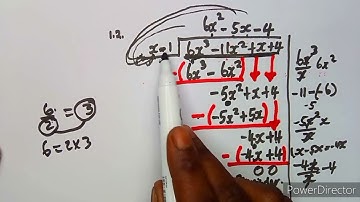 6x² - 5x - 4
1.2. x - 1 6x³ - 11x² + x + 4
-(6x³ - 6x²)
-5x² + x + 4
-(-5x² + 5x)
-4x + 4
-(-4x + 4)
0 0
6/2 = 3
6 = 2 x 3
6x³/x 6x²
-11 - (-6)
-5
-5x²/x
-4x/x = -4
PowerDirector